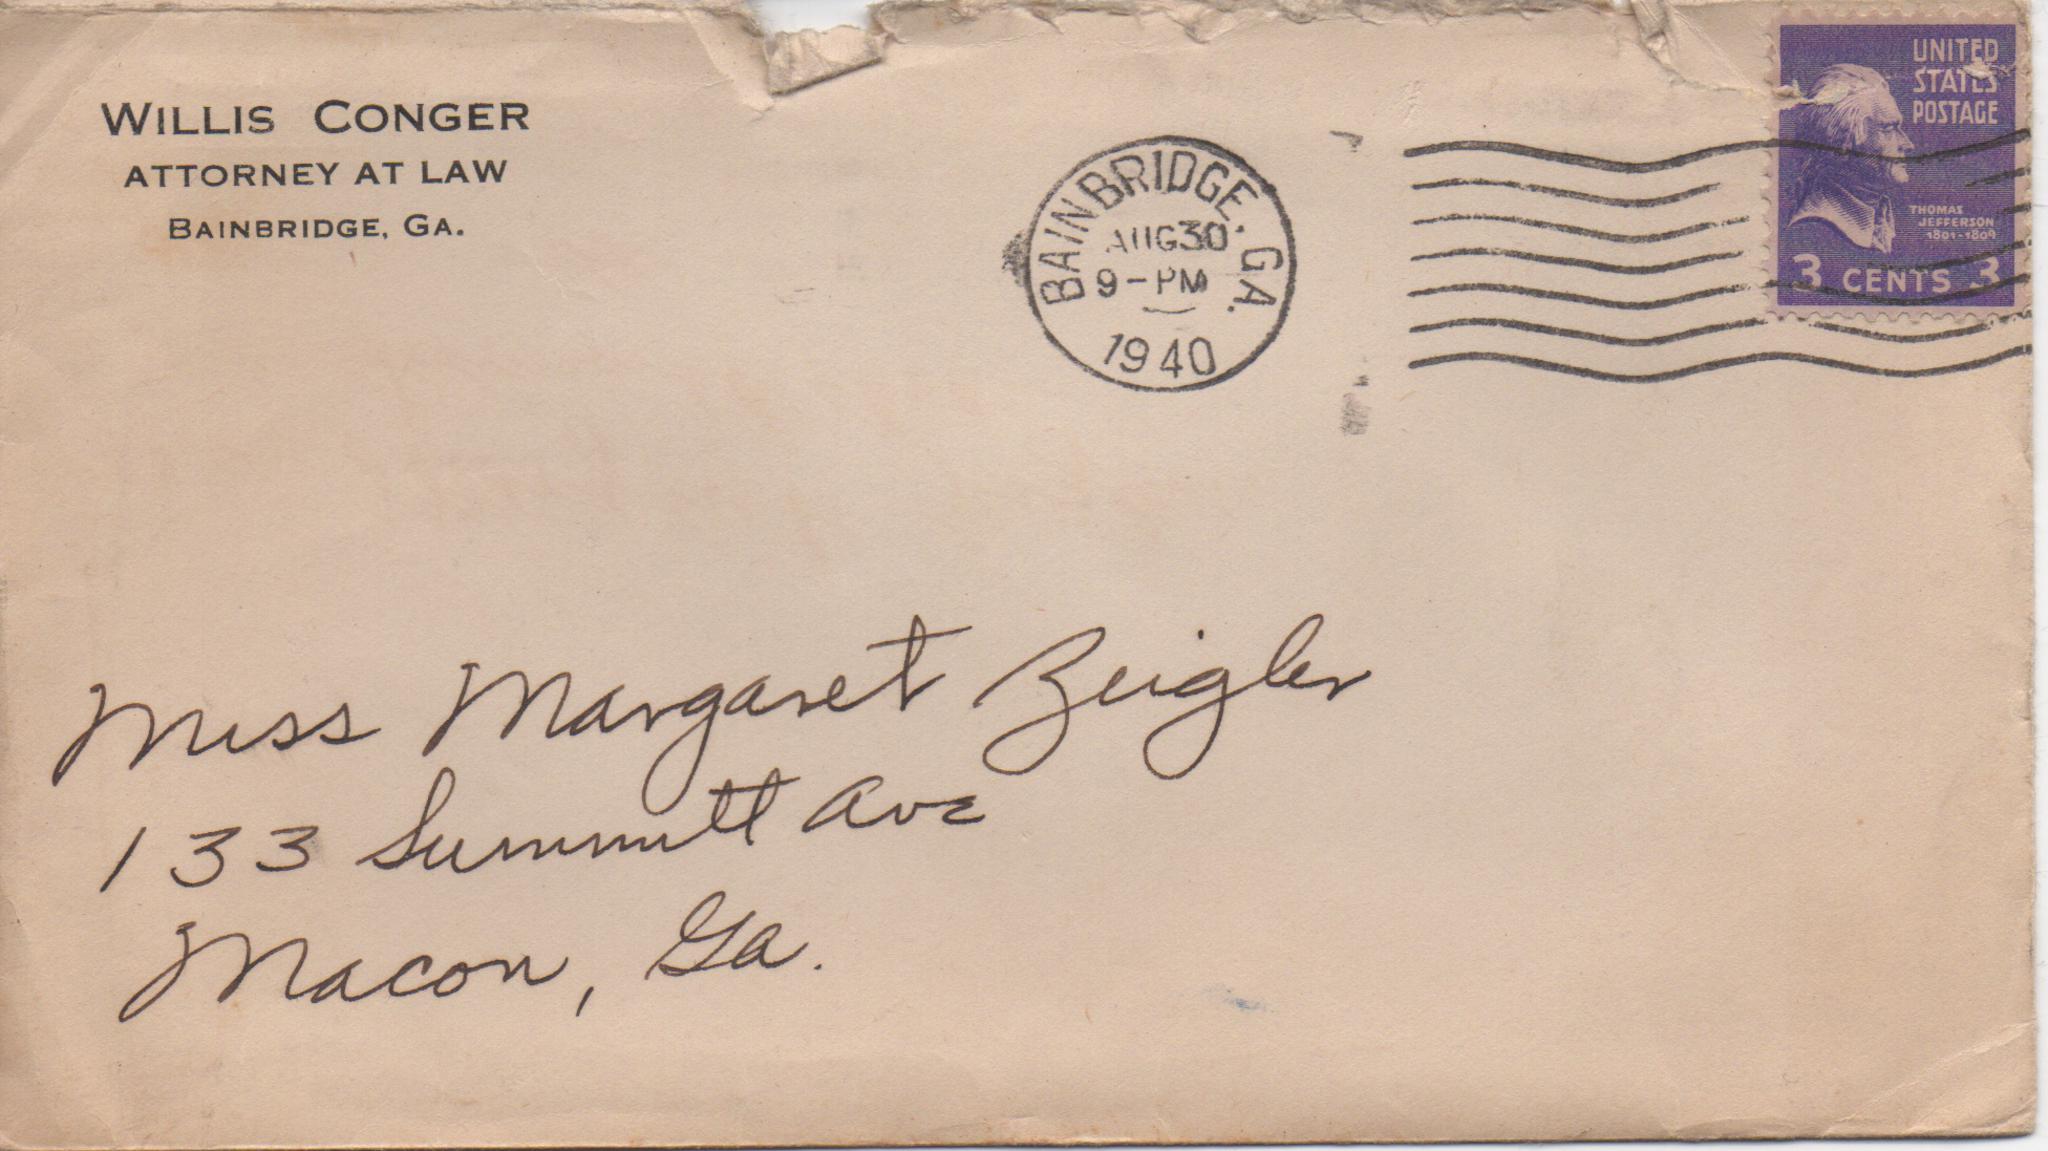 WILLIS CONGER
ATTORNEY AT LAW
BAINBRIDGE, GA.
BAINBRIDGE, GA.
AUG 30
9-PM
1940
UNITED
STATES
POSTAGE
THOMAS
JEFFERSON
1801-1809
3 CENTS 3
Miss Margaret Zeigler
133 Summitt Ave
Macon, Ga.